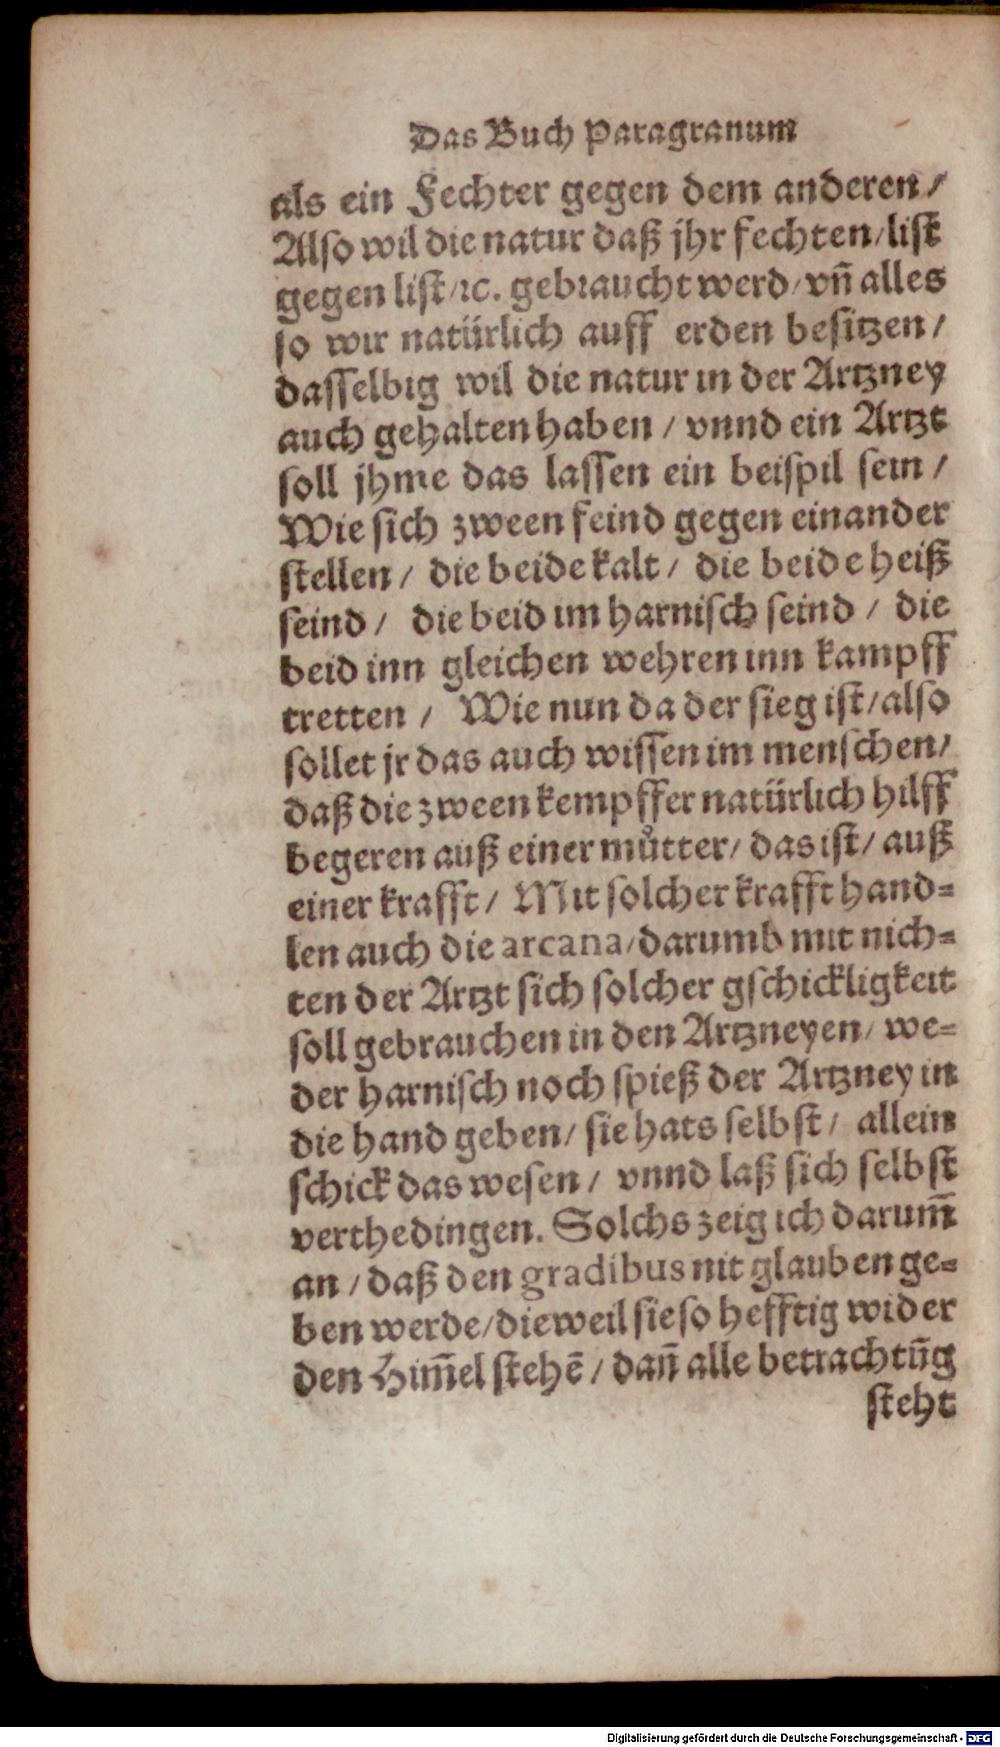 Das Buch Paragranum
als ein Fechter gegen dem anderen /
Also wil die natur daß jhr fechten / list
gegen list / ꝛc. gebraucht werd / vn̄ alles
so wir natürlich auff erden besitzen /
dasselbig wil die natur in der Artzney
auch gehalten haben / vnnd ein Artzt
soll jhme das lassen ein beispil sein /
Wie sich zween feind gegen einander
stellen / die beide kalt / die beide heiß
seind / die beid im harnisch seind / die
beid inn gleichen wehren inn kampff
tretten / Wie nun da der sieg ist / also
sollet jr das auch wissen im menschen /
daß die zween kempffer natürlich hilff
begeren auß einer můtter / das ist / auß
einer krafft / Mit solcher krafft hand-
len auch die arcana / darumb mit nich-
ten der Artzt sich solcher gschickligkeit
soll gebrauchen in den Artzneyen / we-
der harnisch noch spieß der Artzney in
die hand geben / sie hats selbst / allein
schick das wesen / vnnd laß sich selbst
verthedingen. Solchs zeig ich darum̄
an / daß den gradibus nit glauben ge-
ben werde / dieweil sie so hefftig wider
den Him̄el stehē / dan̄ alle betrachtūg
steht
Digitalisierung gefördert durch die Deutsche Forschungsgemeinschaft - DFG